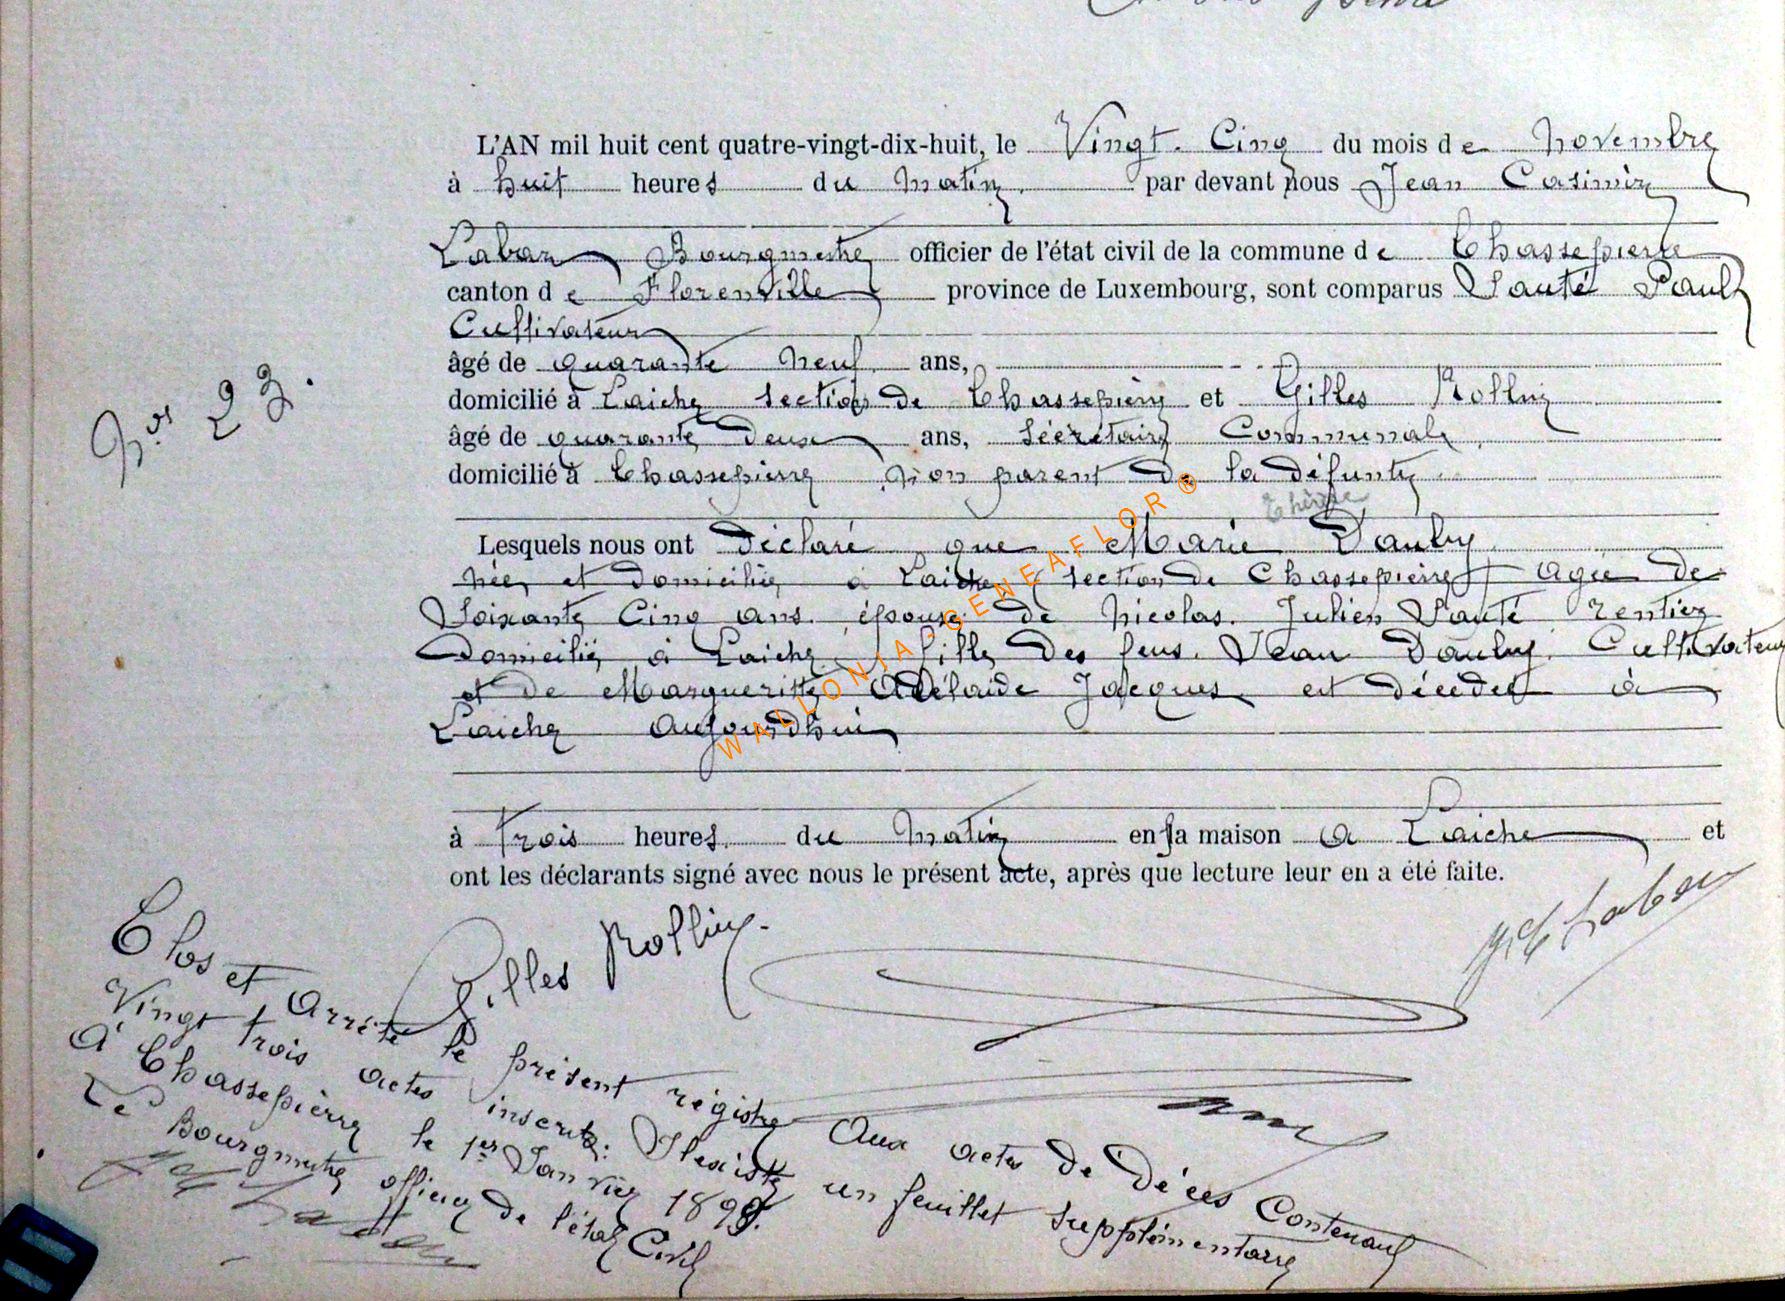 L'AN mil huit cent quatre-vingt-dix-huit, le Vingt. Cinq du mois de Novembre
à huit heures du Matin. par devant nous Jean Casimir
Labar Bourgmestre officier de l'état civil de la commune de Chassepierre
canton de Florenville province de Luxembourg, sont comparus Santé Paul
Cultivateur
âgé de quarante Neuf ans,
domicilié à Laiche section de Chassepierre et Gilles Rollin
âgé de quarante deux ans, Sécrétaire Communale
domicilié à Chassepierre non parent de la défunte
Thérèse
Lesquels nous ont déclaré que Marie Dauby
née et domiciliée à Laiche section de Chassepierre agée de
Soixante Cinq ans. épouse de Nicolas. Julien Santé rentier
Domicilié à Laiche, fille des feus. Jean Dauby. Cultivateur
et de Margueritte Adélaide Jacques est décedée à
Laiche aujourdhui
à trois heures. du Matin en sa maison a Laiche et
ont les déclarants signé avec nous le présent acte, après que lecture leur en a été faite.
Nos 23.
Gilles Rollin.
J C Labar
Clos et Arrêté le présent régistre Aux actes de Décès Contenant
Vingt trois actes inscrits. Il existe un feuillet supplémentaire
A Chassepierre le 1er Janvier 1899.
Le Bourgmestre officier de l'état Civil
J C Labar
WALLONIA-GENEAFLOR®